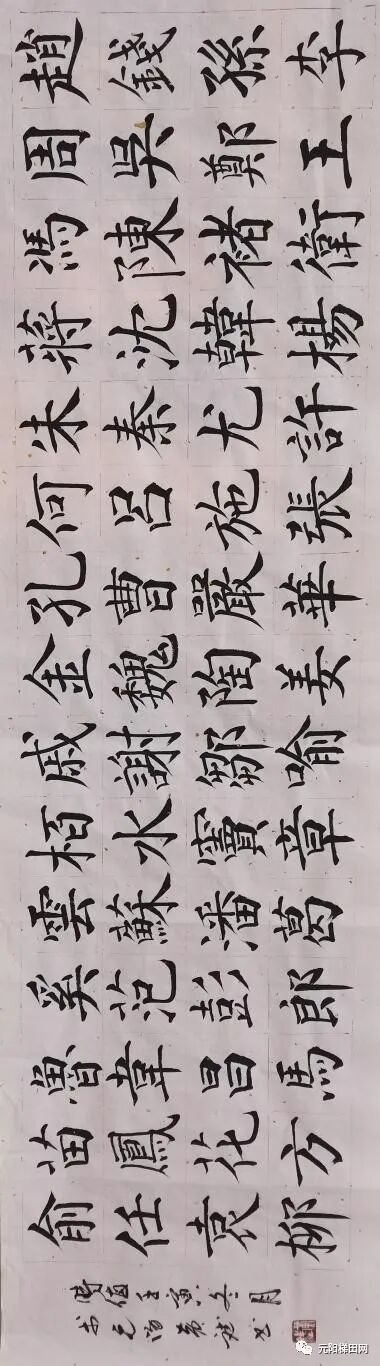 趙錢孫李
周吳鄭王
馮陳褚衛
蔣沈韓楊
朱秦尤許
何呂施張
孔曹嚴華
金魏陶姜
戚謝鄒喻
柏水竇章
雲蘇潘葛
奚范彭郎
魯韋昌馬
苗鳳花方
俞任袁柳
時值壬寅冬月
元陽
元阳梯田网